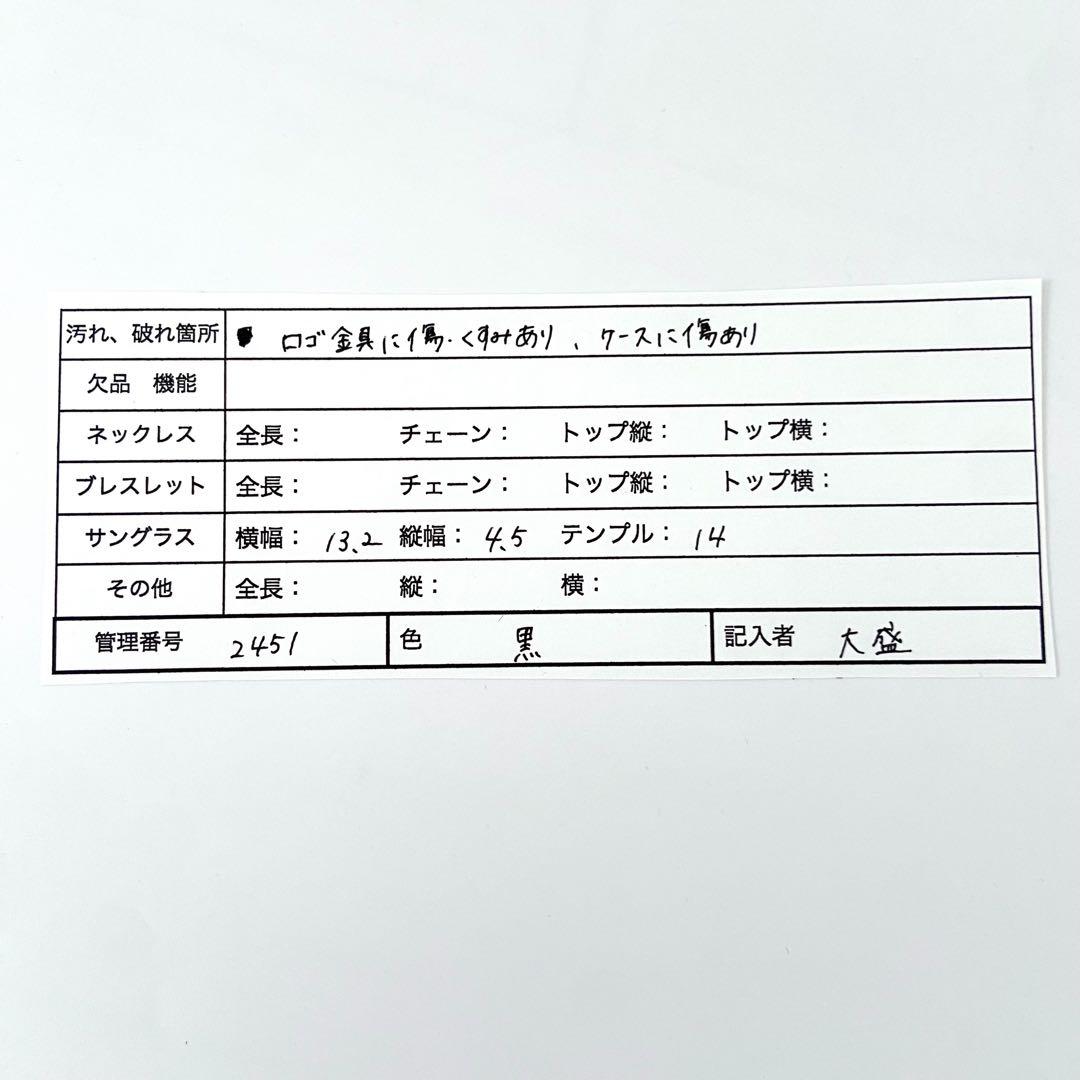 汚れ、破れ箇所 ロゴ金具に傷・くすみあり、ケースに傷あり
欠品 機能
ネックレス 全長： チェーン： トップ縦： トップ横：
ブレスレット 全長： チェーン： トップ縦： トップ横：
サングラス 横幅： 13.2 縦幅： 4.5 テンプル： 14
その他 全長： 縦： 横：
管理番号 2451 色 黒 記入者 大盛